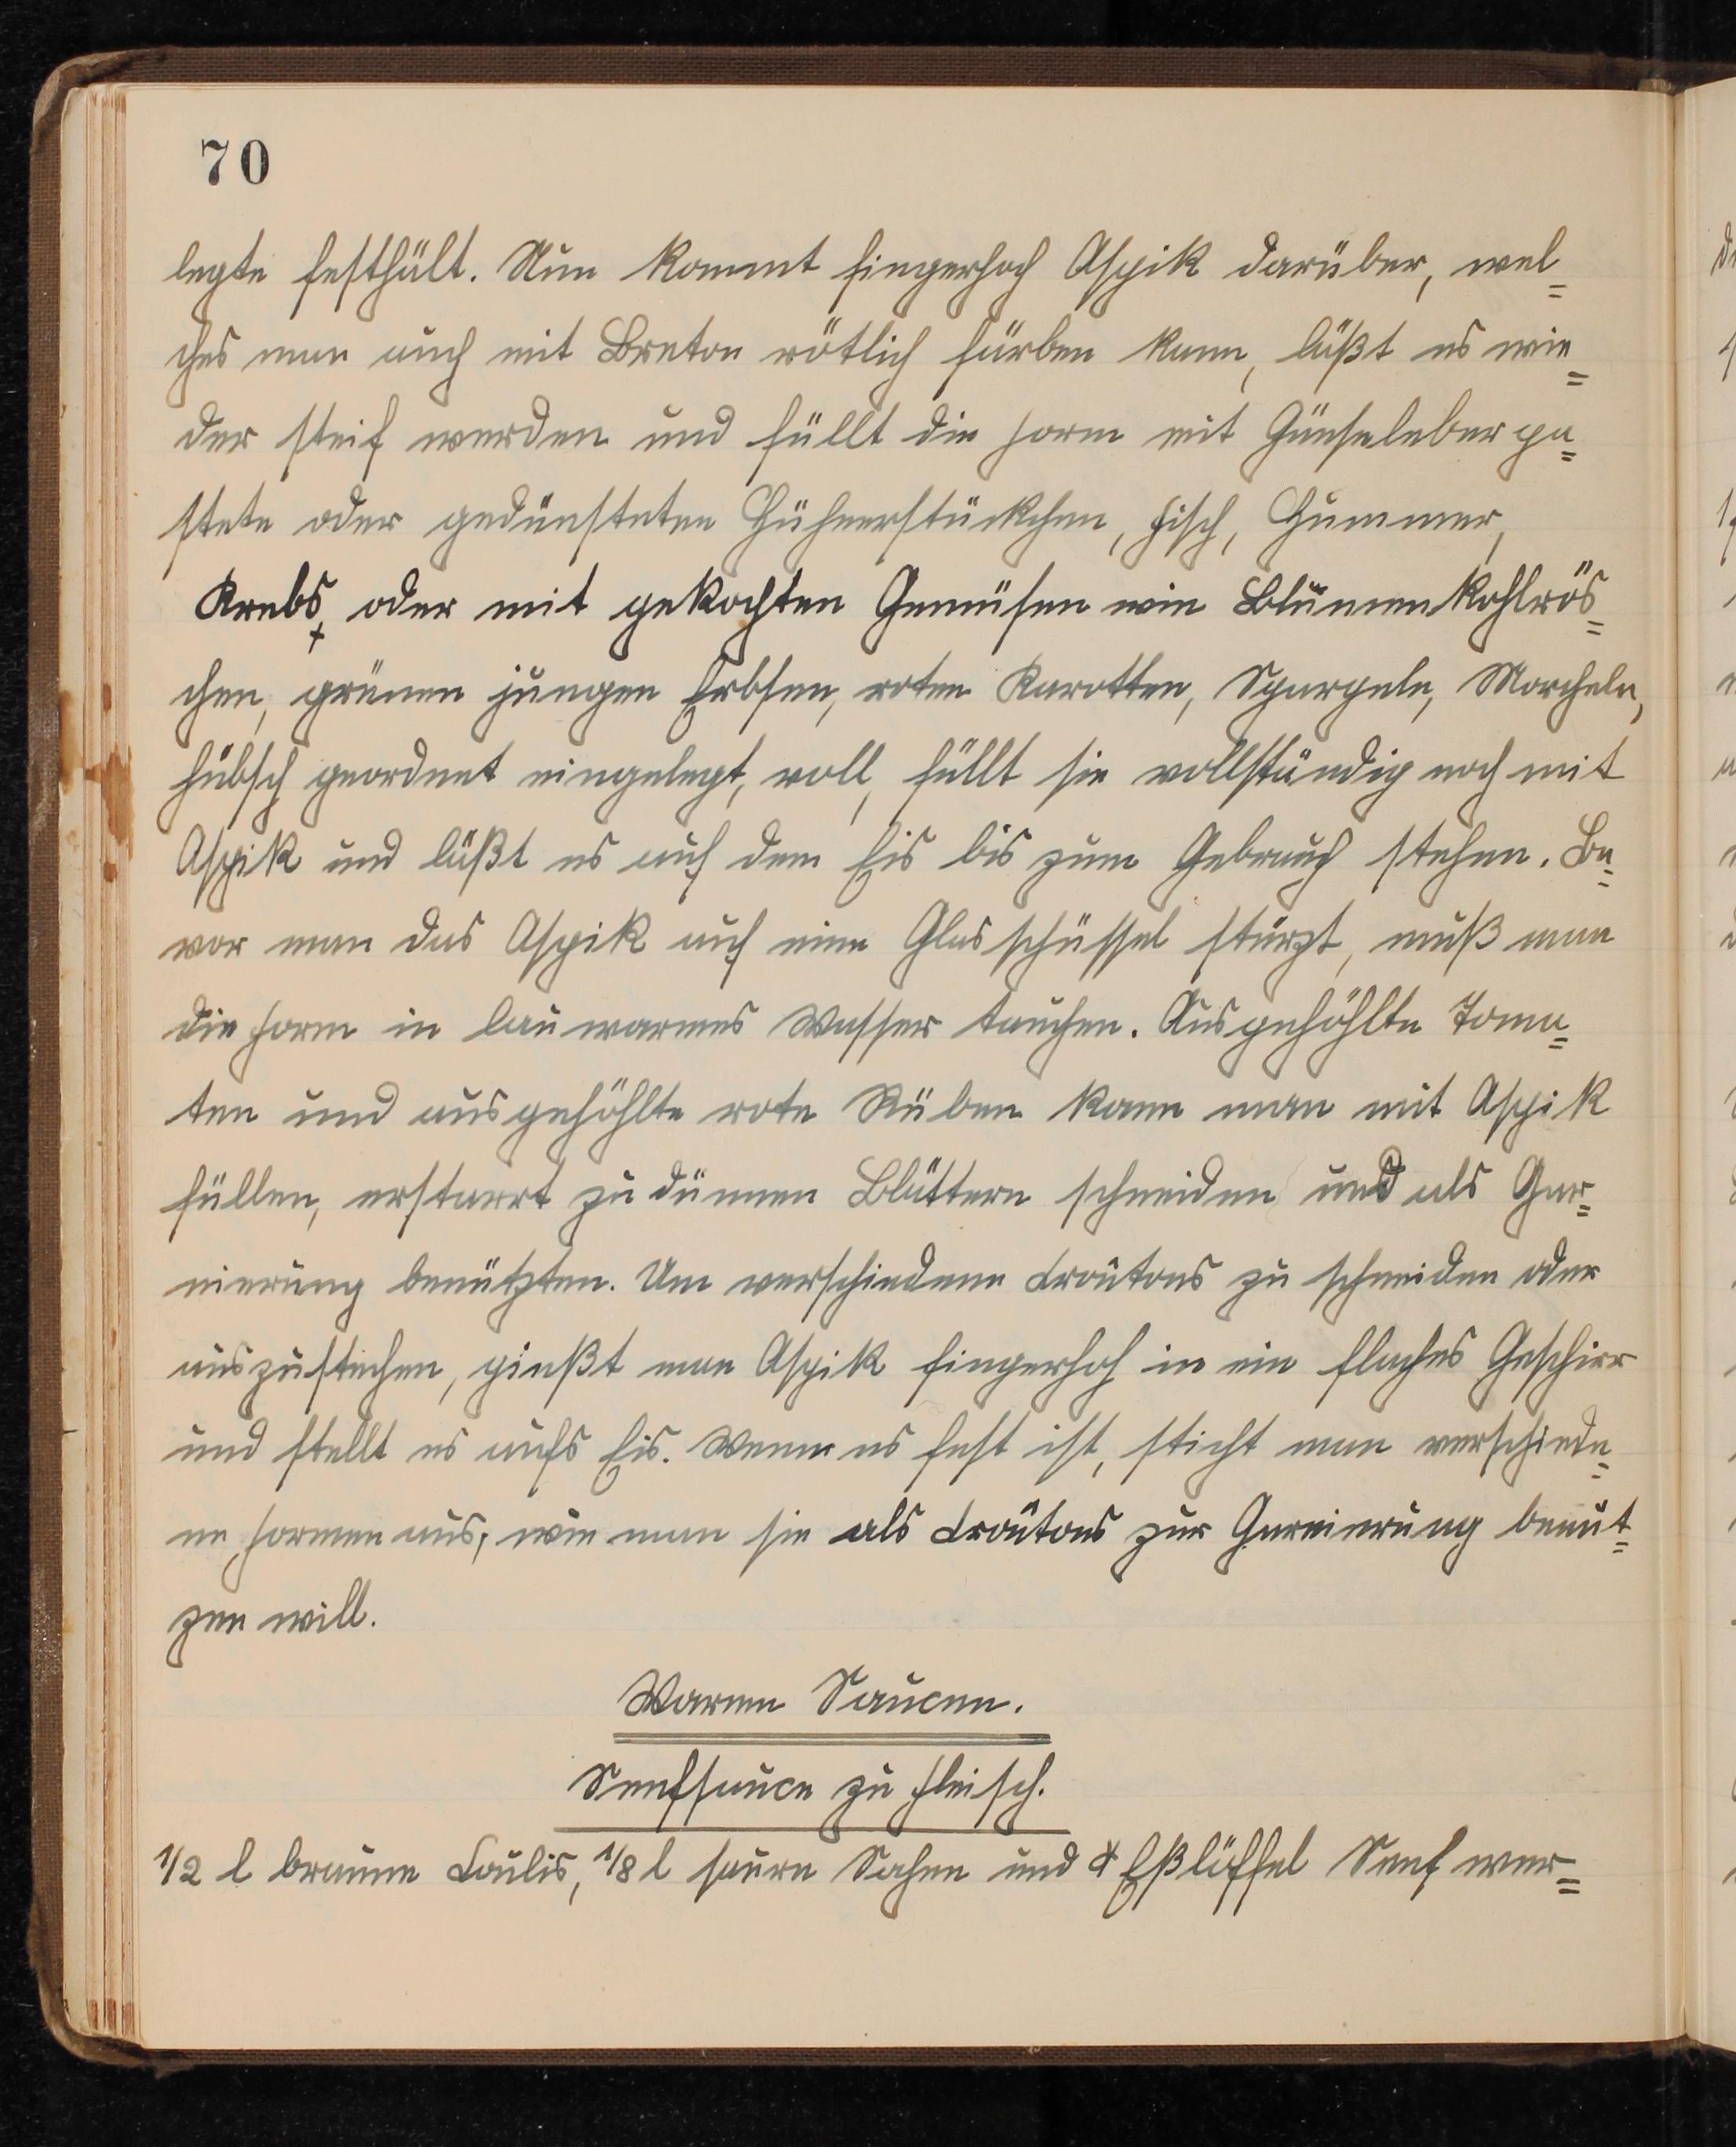 70
legte festhält. Nun kommt fingerhoch Aspik darüber, wel=
ches man auch mit Breton rötlich färben kann, läßt es wie=
der steif werden und füllt die Form mit Gänseleberpa=
stete oder gedünsteten Hühnerstückchen, Fisch, Hummer,
Krebs, oder mit gekochten Gemüsen wie Blumenkohlrös=
chen, grünen jungen Erbsen, roten Karotten, Spargeln, Morcheln,
hübsch geordnet eingelegt, voll, füllt sie vollständig noch mit
Aspik und läßt es auf dem Eis bis zum Gebrauch stehen. Be=
vor man das Aspik auf eine Glasschüssel stürzt, muß man
die Form in lauwarmes Wasser tauchen. Ausgehöhlte Toma=
ten und ausgehöhlte rote Rüben kann man mit Aspik
füllen, erstarrt zu dünnen Blättern schneiden und als Gar=
nierung benützten. Um verschiedene Croûtons zu schneiden oder
auszustechen, gießt man Aspik fingerhoh in ein flaches Geschirr
und stellt es aufs Eis. Wenn es fest ist, sticht man verschiede=
ne Formen aus, wie man sie als Croûtons zur Garnierung benüt=
zen will.
Warme Saucen.
Senfsauce zu Fleisch.
1/2 l braune Coulis, 1/8 l saure Sahne und Eßlöffel Senf wer=